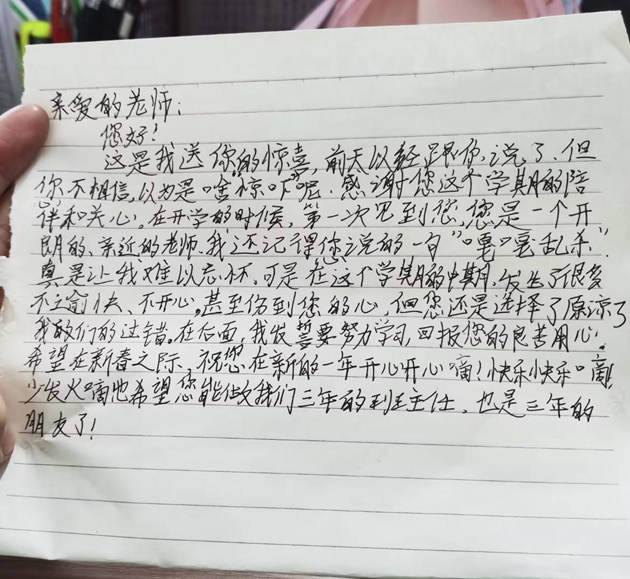 亲爱的老师:
您好!
这是我送你的惊喜,前天以经跟你说了,但
你不相信,以为是啥惊吓呢.感谢您这个学期的陪
伴和关心,在开学的时候,第一次见到您,您是一个开
朗的、亲近的老师,我还记得您说的一句“嘎嘎乱杀”.
真是让我难以忘怀,可是在这个学期的中期,发生了很多
不愉快、不开心,甚至伤到您的心,但您还是选择了原谅了
我们的过错,在后面,我发誓要努力学习,回报您的良苦用心.
希望在新春之际,祝您在新的一年开心开心嘀!快乐快乐嘀,
少发火嘀也希望您能做我们三年的班主任,也是三年的
朋友了!